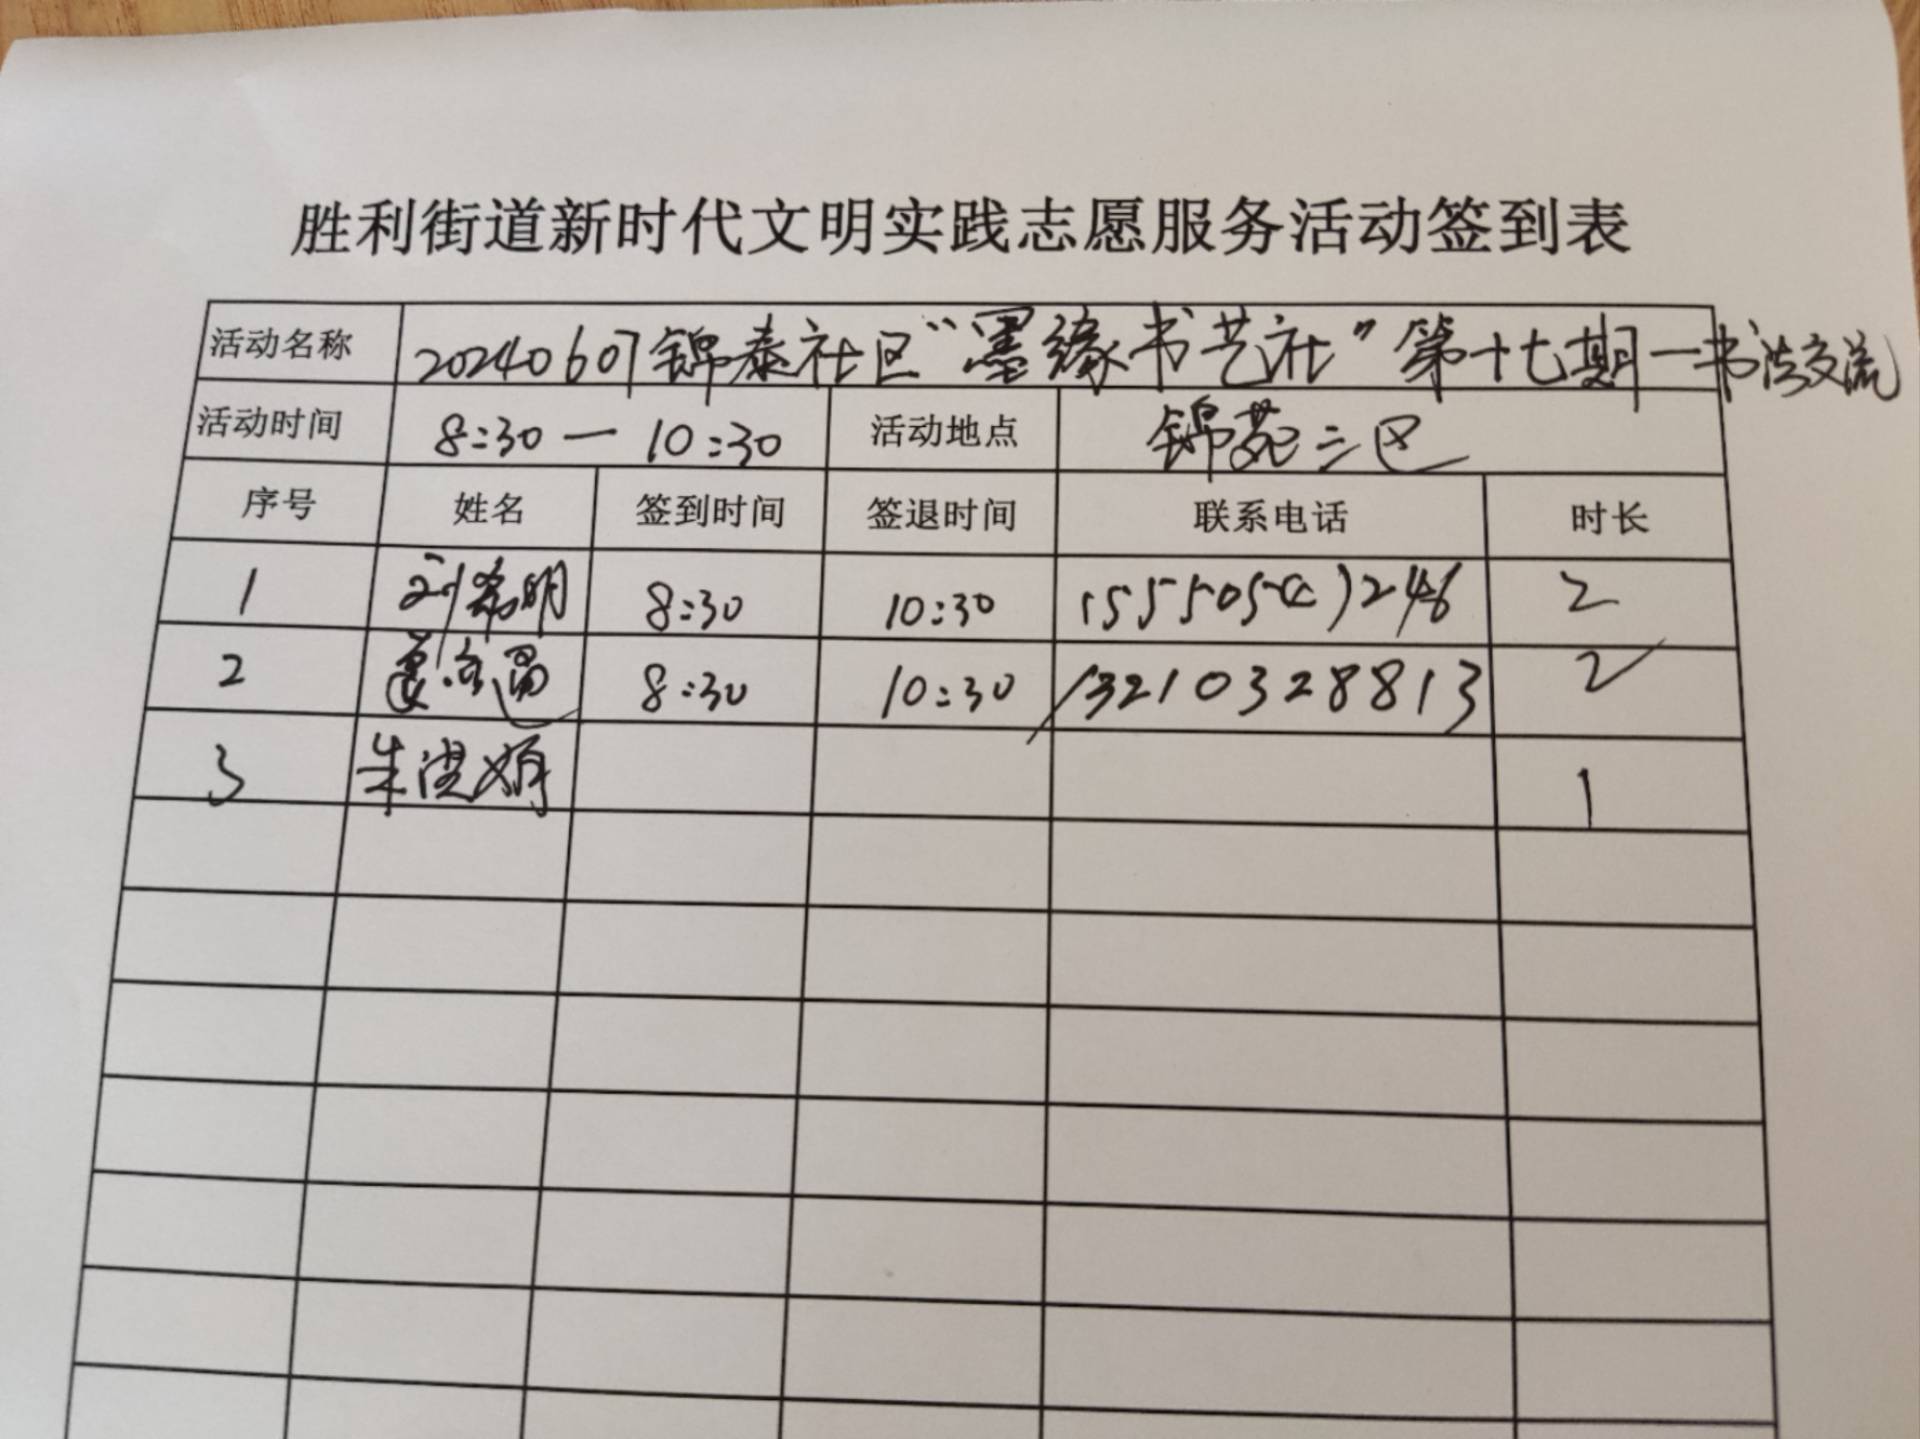 胜利街道新时代文明实践志愿服务活动签到表
活动名称 20240607锦泰社区“墨缘书艺社”第十七期一书法交流
活动时间 8:30一10:30 活动地点 锦苑二区
序号 姓名 签到时间 签退时间 联系电话 时长
1 刘希明 8:30 10:30 2
2 8:30 10:30 13210328813 2
3 朱 娟 1